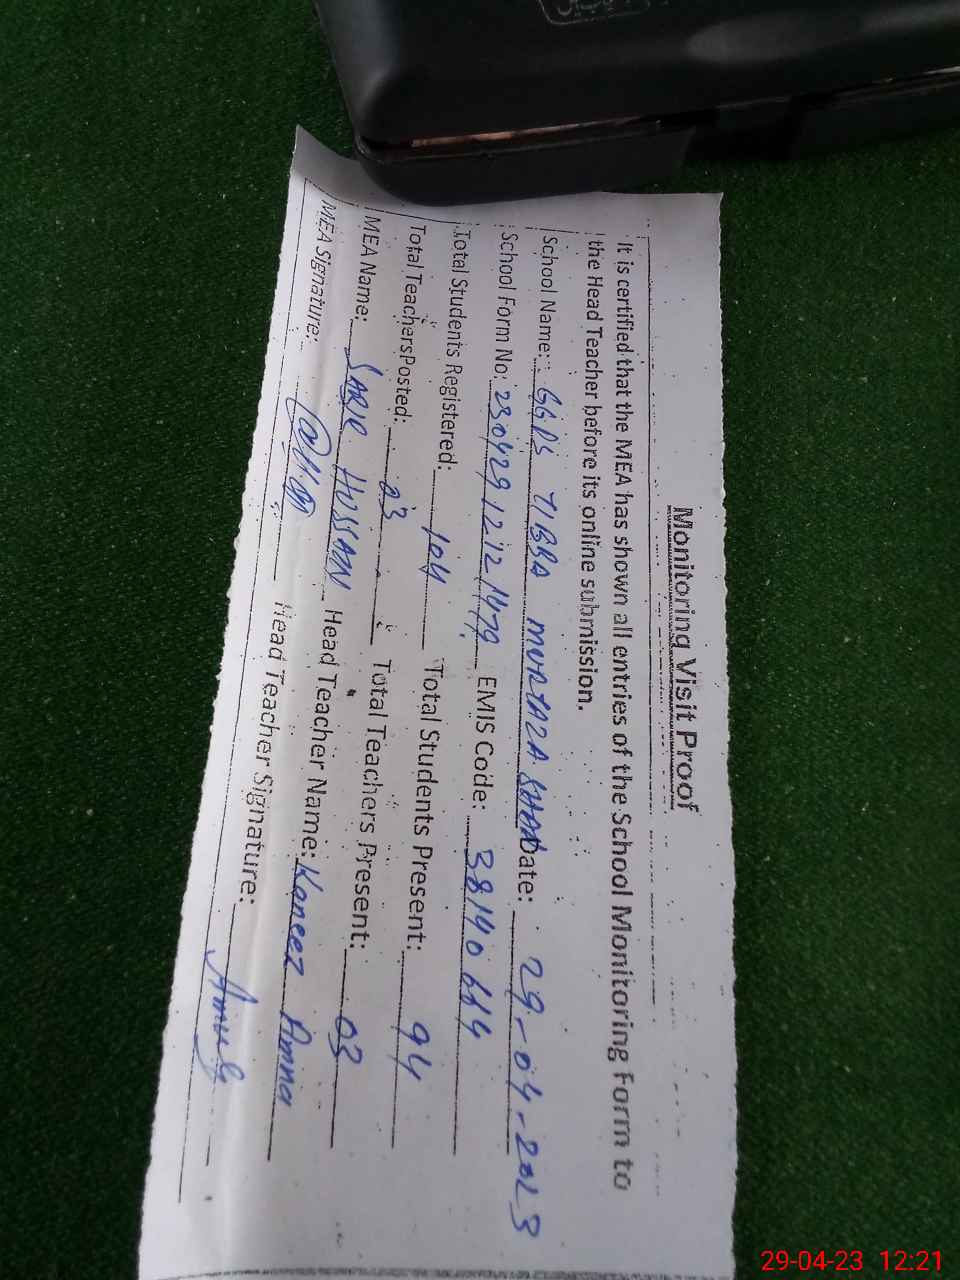 Monitoring Visit Proof
It is certified that the MEA has shown all entries of the School Monitoring Form to
the Head Teacher before its online submission.
School Name: GGPS TIBBA MURTAZA SHAH Date: 29-04-2023
School Form No: 230429 1212 1479 EMIS Code: 38140664
Total Students Registered: 104 Total Students Present: 94
Total TeachersPosted: 03 Total Teachers Present: 03
MEA Name: SABIR HUSSAIN Head Teacher Name: Kaneez Amna
MEA Signature: Head Teacher Signature:
29-04-23 12:21